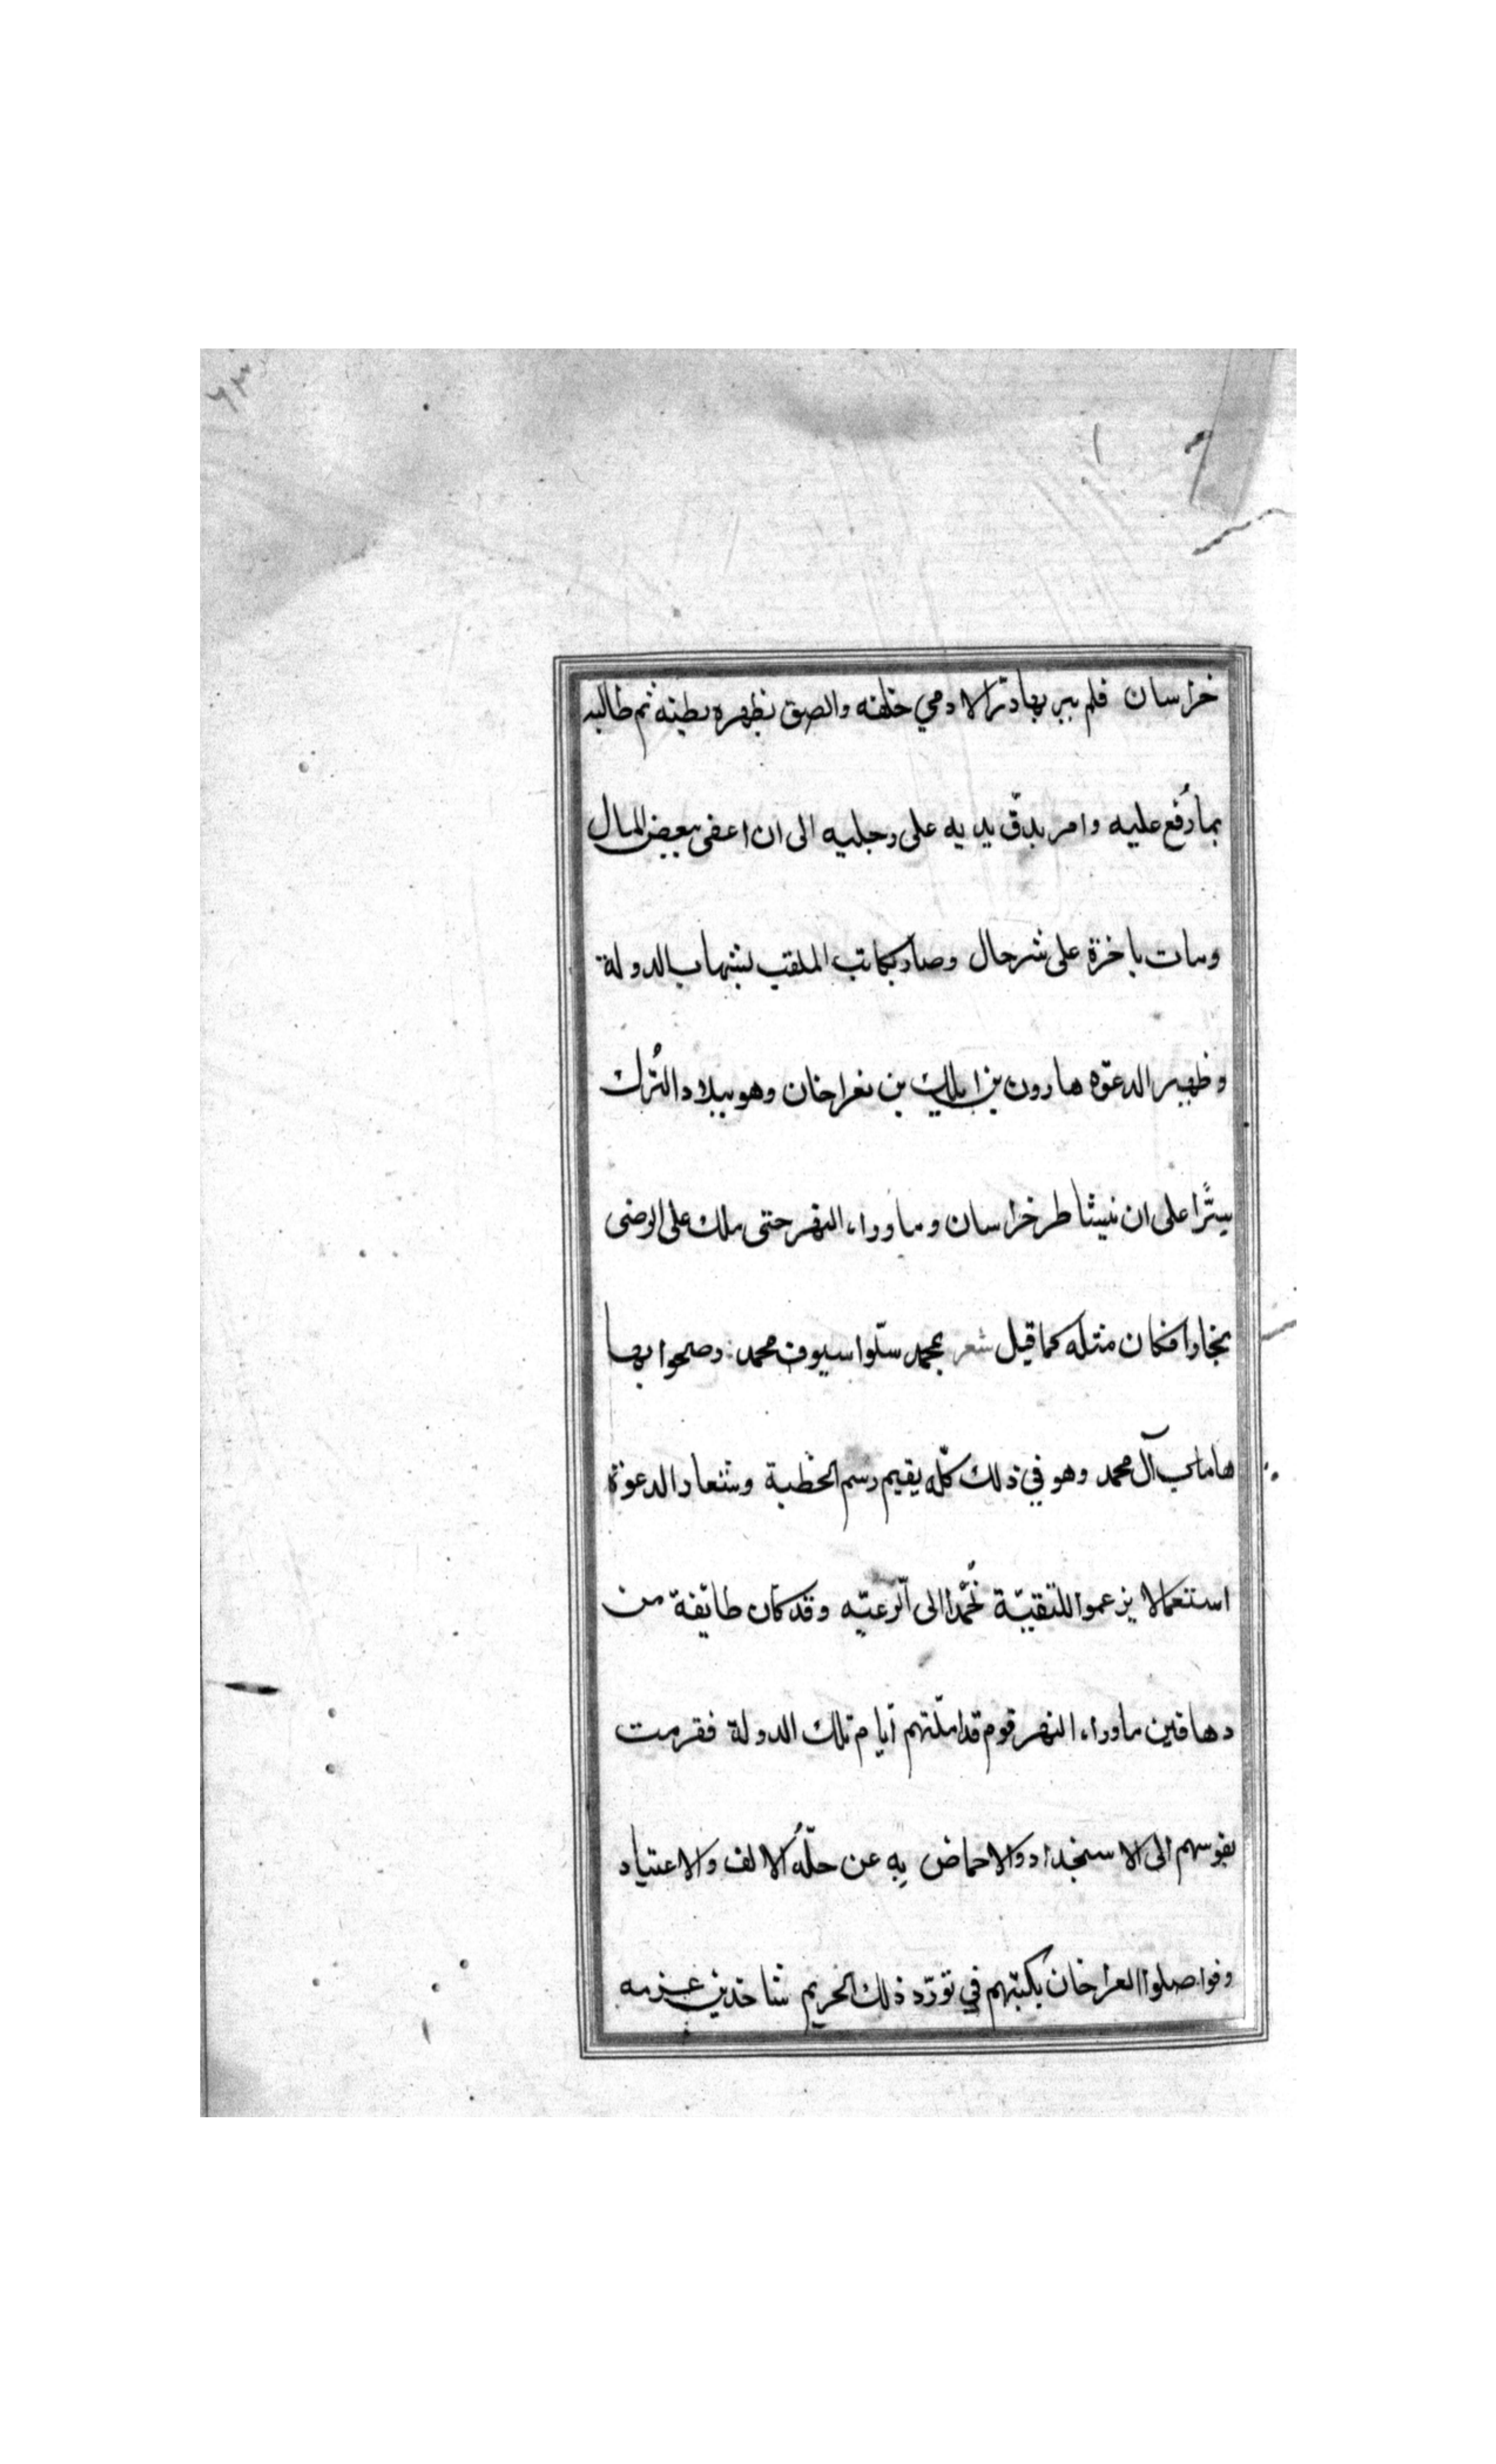 خراسان فلم يبر بهادتر الا دمي خلفه والصق بظهره بطنه ثم طالبه
بما دُفع عليه وامر بدقّ يديه على رجليه الى ان اعفى ببعض المال
ومات باخرة على شر حال وصار يكاتب الملقب بشهاب الدولة
وظهير الدعوّه هارون بن ايلك بن بغراخان وهو ببلاد التُرك
سرًّا على ان يشاطر خراسان وماوراء النهر حتى ملك على الرضى
بخارا فكان مثله كما قيل شعر بمحمد سلّوا سيوف محمد رضحوا بها
هامات آل محمد وهو في ذلك كلّه يقيم رسم الخطبة وشعار الدعوة
استعمالا يزعموا للتقيّة الى وقد كان طايفة من
دهاقين ماوراء النهر قوم قد املّتهم آيام تلك الدولة فقرمت
نفوسهم الى الاستجداد والاحماض به عن حلّةُ الالف والاعتياد
وفواصلوا بغراخان بكتبهم في تورّد ذلك الحريم شاحذين عزمه